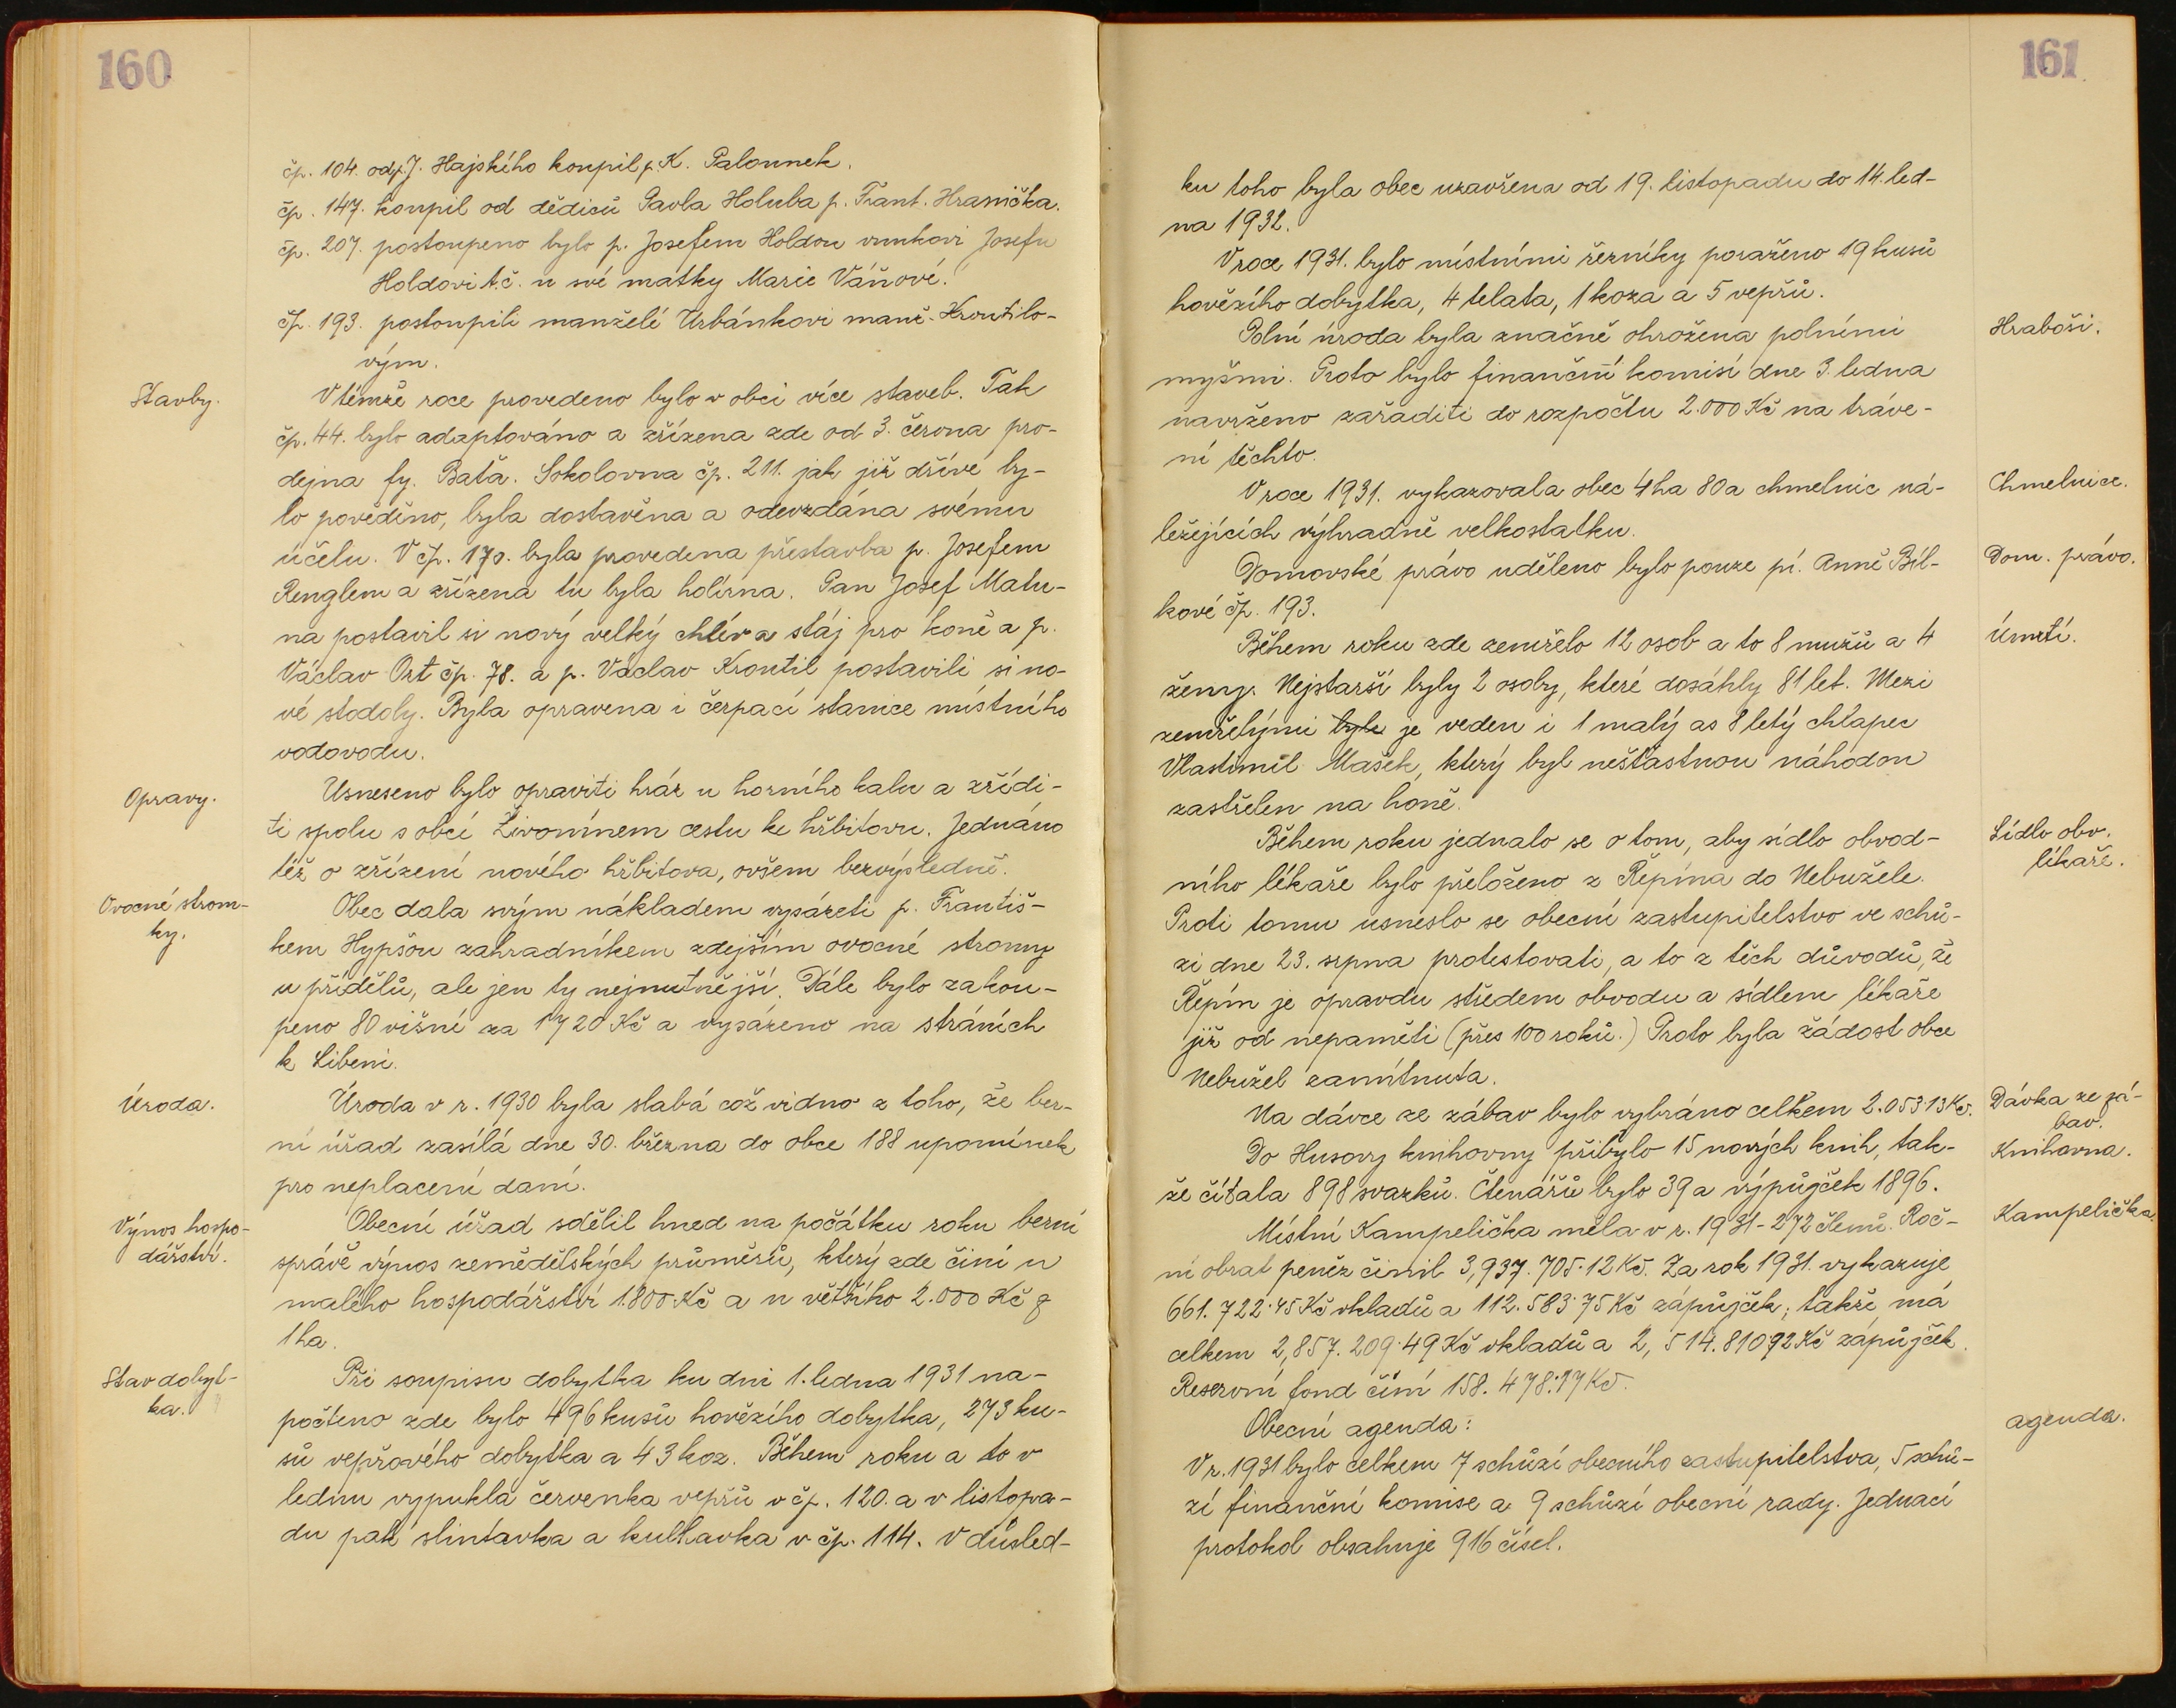 160
čp. 104. od p. J. Hajského koupil p. K. Palounek.
čp. 147. koupil od dědiců Pavla Holuba p. Frant. Hranička.
čp. 207. postoupeno bylo p. Josefem Holdou vnukovi Josefu
Holdovi t.č. u své matky Marie Váňové.
čp. 193. postoupili manželé Urbánkovi manž. Kroutilo-
vým.
Stavby.
V témže roce provedeno bylo v obci více staveb. Tak
čp. 44. bylo adaptováno a zřízena zde od 3. června pro-
dejna fy. Baťa. Sokolovna čp. 211. jak již dříve by-
lo pověděno, byla dostavěna a odevzdána svému
účelu. V čp. 170. byla provedena přestavba p. Josefem
Renglem a zřízena tu byla holírna. Pan Josef Matu-
na postavil si nový velký chlév a stáj pro koně a p.
Václav Ort čp. 78. a p. Václav Kroutil postavili si no-
vé stodoly. Byla opravena i čerpací stanice místního
vodovodu.
Opravy.
Usneseno bylo opraviti hráz u horního kalu a zřídi-
ti spolu s obcí Živonínem cestu ke hřbitovu. Jednáno
též o zřízení nového hřbitova, ovšem bezvýsledně.
Ovocné strom-
ky.
Obec dala svým nákladem vysázeti p. Františ-
kem Hypšou zahradníkem zdejším ovocné stromy
u přídělů, ale jen ty nejnutnější. Dále bylo zakou-
peno 80 višní za 1720 Kč a vysázeno na stráních
k Libeni.
Úroda.
Úroda v r. 1930 byla slabá což vidno z toho, že ber-
ní úřad zasílá dne 30. března do obce 188 upomínek
pro neplacení daní.
Výnos hospo-
dářství.
Obecní úřad sdělil hned na počátku roku berní
správě výnos zemědělských průměrů, který zde činí u
malého hospodářství 1.800 Kč a u většího 2.000 Kč z
1 ha.
Stav dobyt-
ka.
Při soupisu dobytka ku dni 1. ledna 1931 na-
počteno zde bylo 496 kusů hovězího dobytka, 273 ku-
sů vepřového dobytka a 43 koz. Během roku a to v
lednu vypukla červenka vepřů v čp. 120. a v listopa-
du pak slintavka a kulhavka v čp. 114. V důsled-
161
ku toho byla obec uzavřena od 19. listopadu do 14. led-
na 1932.
V roce 1931. bylo místními řezníky poraženo 19 kusů
hovězího dobytka, 4 telata, 1 koza a 5 vepřů.
Hraboši.
Polní úroda byla značně ohrožena polními
myšmi. Proto bylo finanční komisí dne 3. ledna
navrženo zařaditi do rozpočtu 2.000 Kč na tráve-
ní těchto.
Chmelnice.
V roce 1931. vykazovala obec 4 ha 80 a chmelnic ná-
ležejících výhradně velkostatku.
Dom. právo.
Domovské právo uděleno bylo pouze pí. Anně Bíl-
kové čp. 193.
Úmrtí.
Během roku zde zemřelo 12 osob a to 8 mužů a 4
ženy. Nejstarší byly 2 osoby, které dosáhly 81 let. Mezi
zemřelými byl je veden i 1 malý as 8 letý chlapec
Vlastimil Mašek, který byl nešťastnou náhodou
zastřelen na honě.
Sídlo obv.
lékaře.
Během roku jednalo se o tom, aby sídlo obvod-
ního lékaře bylo přeloženo z Řepína do Nebužele.
Proti tomu usneslo se obecní zastupitelstvo ve schů-
zi dne 23. srpna protestovati, a to z těch důvodů, že
Řepín je opravdu středem obvodu a sídlem lékaře
již od nepaměti (přes 100 roků.) Proto byla žádost obce
Nebužel zamítnuta.
Dávka ze zá-
bav.
Na dávce ze zábav bylo vybráno celkem 2.053.13 Kč.
Knihovna.
Do Husovy knihovny přibylo 15 nových knih, tak-
že čítala 898 svazků. Čtenářů bylo 39 a výpůjček 1896.
Kampelička.
Místní Kampelička měla v r. 1931 - 272 členů. Roč-
ní obrat peněz činil 3,937.705.12 Kč. Za rok 1931. vykazuje
661.722.45 Kč vkladů a 112.583.75 Kč zápůjček; takže má
celkem 2,857.209.49 Kč vkladů a 2,514.81092 Kč zápůjček.
Reservní fond činí 158.478.17 Kč.
agenda.
Obecní agenda:
V r. 1931 bylo celkem 7 schůzí obecního zastupitelstva, 5 schů-
zí finanční komise a 9 schůzí obecní rady. Jednací
protokol obsahuje 916 čísel.